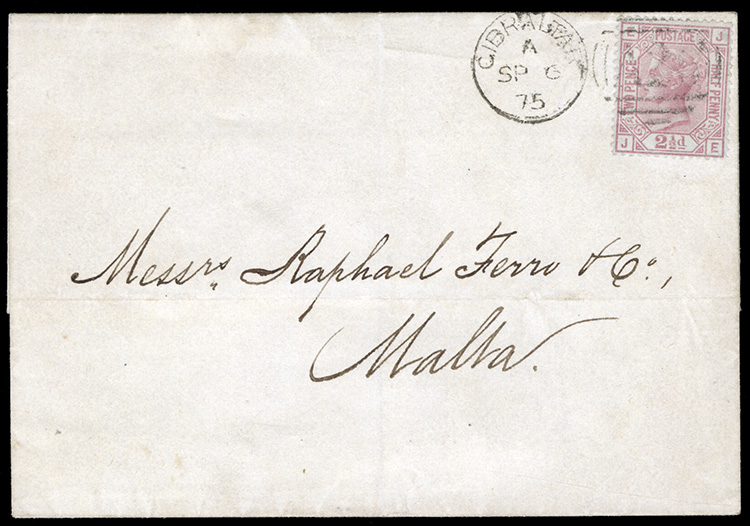 GIBRALTAR
A
SP 6
75
E POSTAGE J
TWO PENCE
HALF PENNY
J 2½d E
Messrs Raphael Ferro & Co.,
Malta.